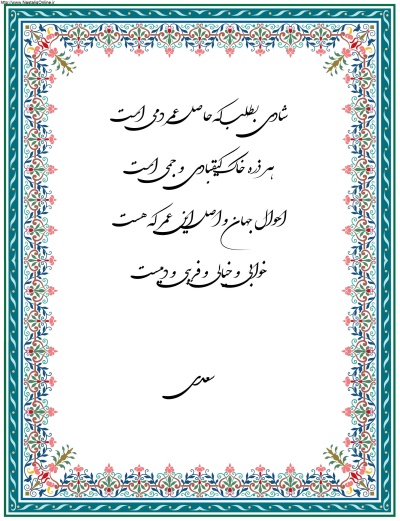 http://www.NastaliqOnline.ir
شادی بطلب که حاصل عمر دمی است
هر ذره خاک کیقبادی و جمی است
احوال جهان و اصل این عمر که هست
خوابی و خیالی و فریبی و دمیست
سعدی